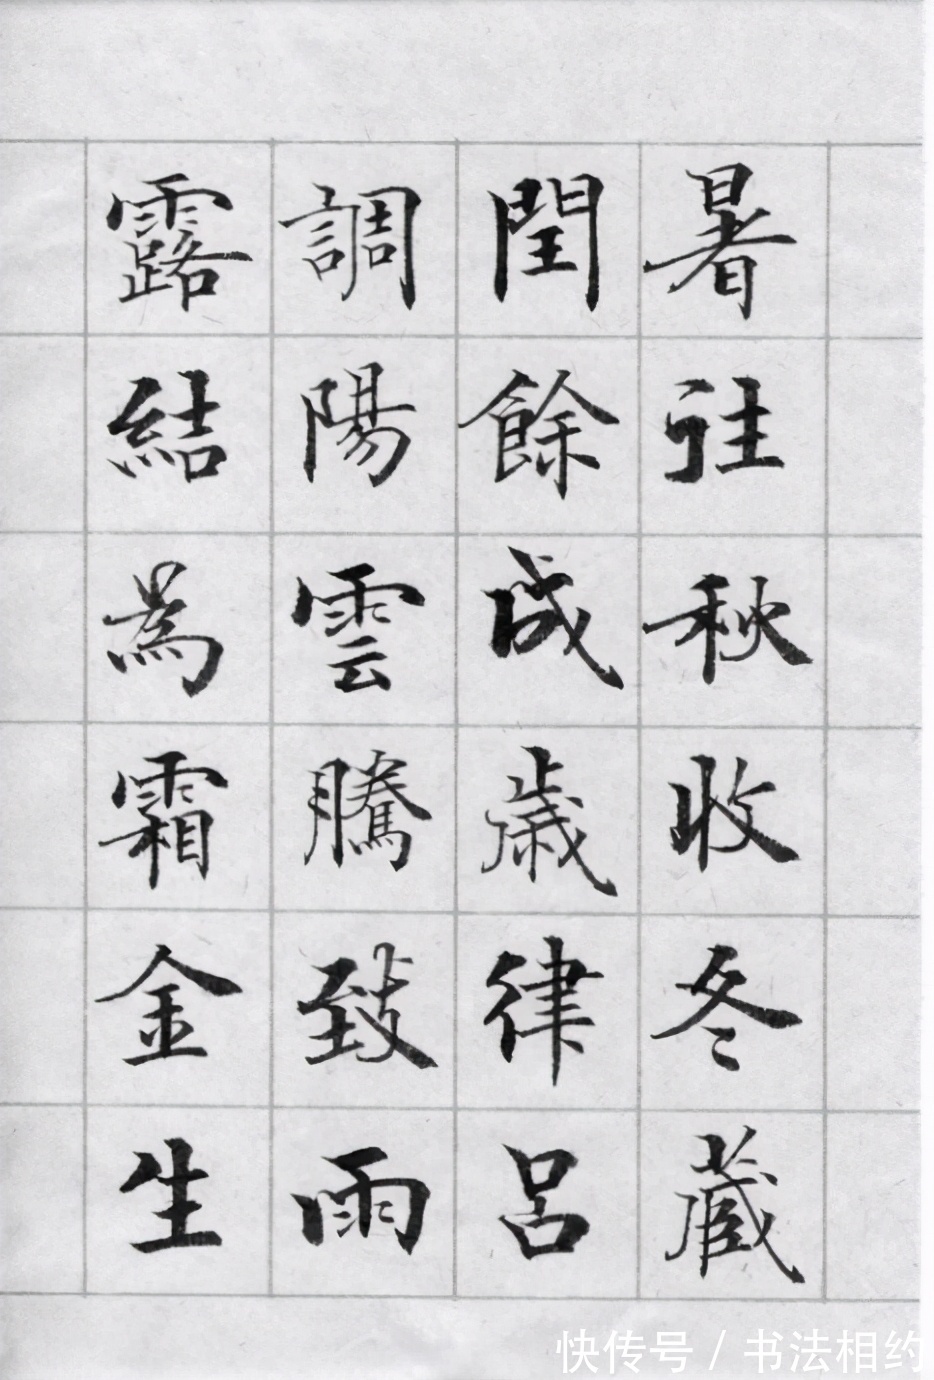 暑往秋收冬藏
閏餘成歲律呂
調陽雲騰致雨
露結為霜金生
快传号 / 书法相约